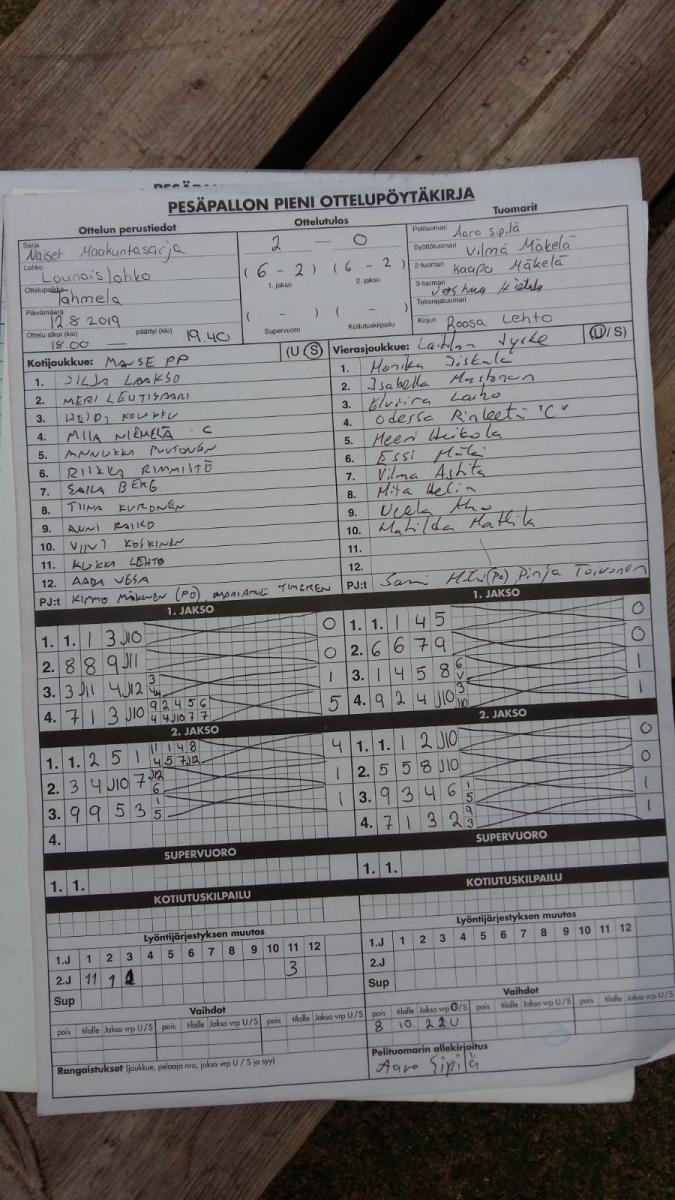 PESÄPALLON PIENI OTTELUPÖYTÄKIRJA
Ottelun perustiedot
Ottelutulos
Tuomarit
Sarja Naiset Maakuntasarja
Lohko Lounaislohko
Ottelupaikka Tahmela
Päivämäärä 12.8 2019
Ottelu alkoi (klo) 18.00 — päättyi (klo) 19.40
2 — 0
(6 - 2) (6 - 2)
1. jakso 2. jakso
( - ) ( - )
Supervuoro Kotiutuskilpailu
Pelituomari Aaro Sipilä
Syöttötuomari Vilma Mäkelä
2-tuomari Kaapo Mäkelä
3-tuomari Joshua
Takarajatuomari
Kirjuri Roosa Lehto
Kotijoukkue: MANSE PP (U/S)
1. SILJA LAAKSO
2. MERI LEHTISAARI
3. HEIDI KOUKKU
4. MILA NIEMELÄ C
5. ANNUKKA PUUTONEN
6. RIIKKA RIMMISTÖ
7. SAILA BERG
8. TIINA KURONEN
9. ANNI RAIKO
10. VIIVI KOSKINEN
11. KUKKA LEHTO
12. AADA VESA
PJ:t KIMMO MÄKINEN (PO), MARIANNE TIMEREN
Vierasjoukkue: Laitilan Jyske (U/S)
1. Monika
2. Isabella Mustonen
3. Elviira Launo
4. Odessa "C"
5. Meeri Heikola
6. Essi Mäki
7. Vilma
8. Miia Helin
9. Veela Aho
10. Matilda Mattila
11.
12.
PJ:t Sami (PO) Pinja Toivonen
1. JAKSO
1. 1. 1 3 J10 0
2. 8 8 9 J11 0
3. 3 J11 4 J12 1
4. 7 1 3 J10 9 2 4 5 6 5
4 4 J10 7 7
1. JAKSO
1. 1. 1 4 5 0
2. 6 6 7 9 0
3. 1 4 5 8 6 V 1
4. 9 2 4 J10 3 J10 1
2. JAKSO
1. 1. 2 5 1 11 1 4 8 4
4 5 7 J12
2. 3 4 J10 7 J12 6 1
3. 9 9 5 3 1 5 1
4.
2. JAKSO
1. 1. 1 2 J10 0
2. 5 5 8 J10 0
3. 9 3 4 6 1 5 1
4. 7 1 3 2 9 3 1
SUPERVUORO
1. 1.
SUPERVUORO
1. 1.
KOTIUTUSKILPAILU
KOTIUTUSKILPAILU
Lyöntijärjestyksen muutos
1.J 1 2 3 4 5 6 7 8 9 10 11 12
2.J 11 1 3
Sup
Lyöntijärjestyksen muutos
1.J 1 2 3 4 5 6 7 8 9 10 11 12
2.J
Sup
Vaihdot
pois tilalle Jakso vrp U/S pois tilalle Jakso vrp U/S pois tilalle Jakso vrp U/S
Vaihdot
pois tilalle Jakso vrp U/S pois tilalle Jakso vrp U/S pois tilalle Jakso vrp U/S
8 10 2 2 U
Rangaistukset (joukkue, pelaaja nro, jakso vrp U / S ja syy)
Pelituomarin allekirjoitus
Aaro Sipilä